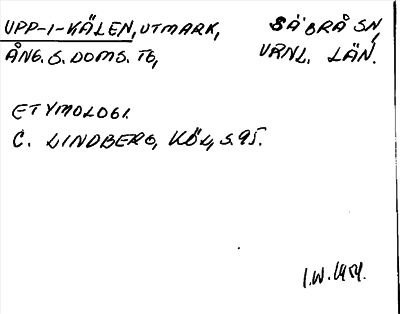 UPP-I-KÄLEN, UTMARK, SÄBRÅ SN,
ÅNG. S. DOMS. TG, VRNL. LÄN.
ETYMOLOGI.
C. LINDBERG, KÖL, S.95.
I.W.